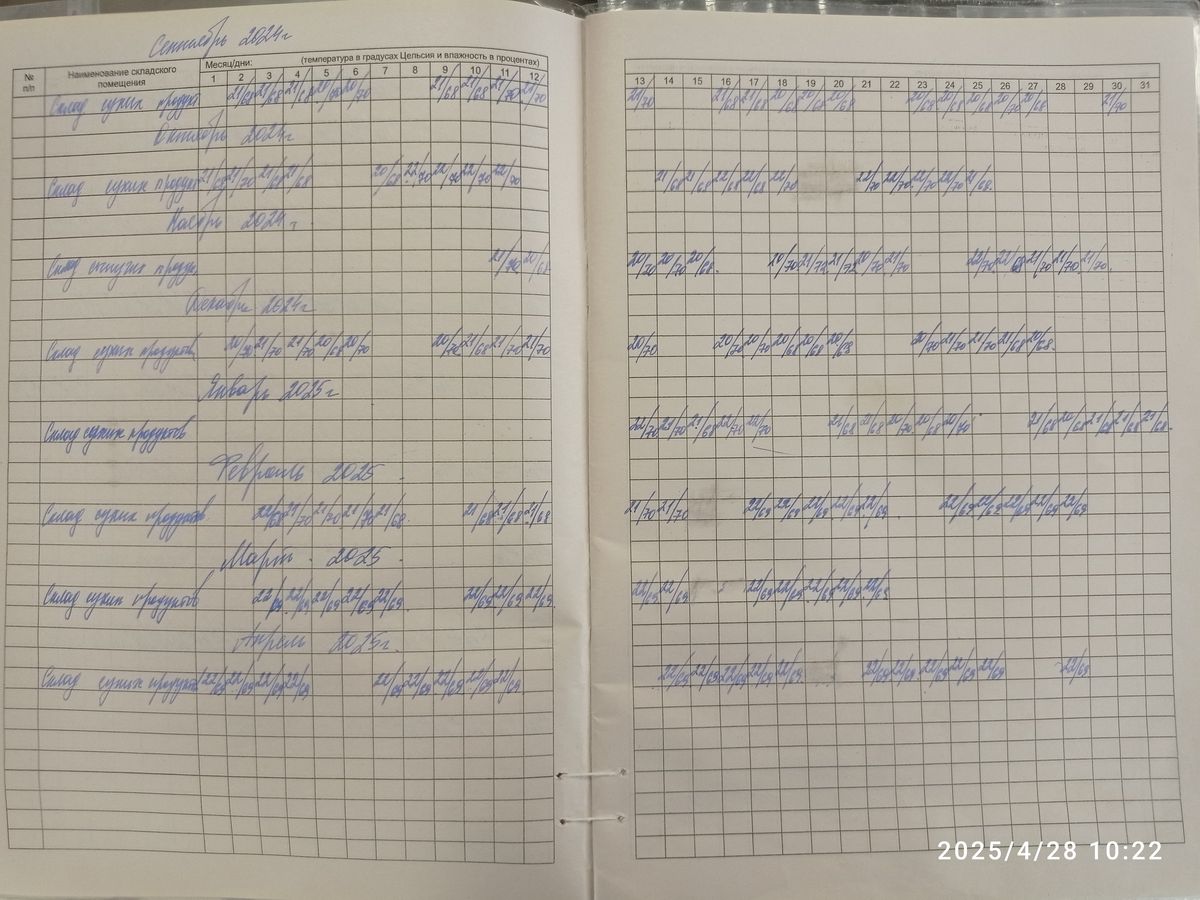 Сентябрь 2024г
№ п/п Наименование складского помещения Месяц/дни: (температура в градусах Цельсия и влажность в процентах)
1 2 3 4 5 6 7 8 9 10 11 12 13 14 15 16 17 18 19 20 21 22 23 24 25 26 27 28 29 30 31
Склад сухих продукт 21/68 21/68 21/68 20/70 21/68 21/68 21/70 21/70 21/70 21/68 21/68 20/68 20/68 20/68 20/68 20/68 20/68 20/70 20/68 21/70
Октябрь 2024г
Склад сухих продукт 21/68 21/70 21/68 21/68 20/68 22/70 22/70 22/70 22/70 21/68 21/68 22/68 22/68 22/70 22/70 22/70 22/70 22/70 21/68
Ноябрь 2024г.
Склад 21/70 20/68 20/70 20/70 20/68 20/70 21/72 21/72 20/70 21/70 22/70 21/70 21/70 21/70
Декабрь 2024г
Склад сухих продуктов 20/70 21/70 21/70 20/68 20/70 20/70 21/68 21/70 21/70 20/70 20/70 20/70 20/68 20/68 20/68 20/70 21/70 21/70 21/68 20/68
Январь 2025г
Склад сухих продуктов 22/70 21/70 21/68 22/70 22/70 21/68 21/68 20/70 20/68 20/70 21/68 20/68 21/68 21/68 21/68
Февраль 2025
Склад сухих продуктов 22/68 21/70 21/70 21/70 21/68 21/68 21/68 21/68 21/70 21/70 22/69 22/69 22/69 22/69 22/69 22/69 22/69 22/69 22/69 22/69
Март 2025
Склад сухих продуктов 22/69 22/69 22/69 22/69 22/69 22/69 22/69 22/69 22/69 22/69 22/69 22/69 22/69 22/69 22/69
Апрель 2025г.
Склад сухих продукт 22/69 22/69 22/69 22/69 22/69 22/69 22/69 22/69 22/69 22/69 22/69 22/69 22/69 22/69 22/69 22/69 22/69 22/69 22/69 22/69
2025/4/28 10:22